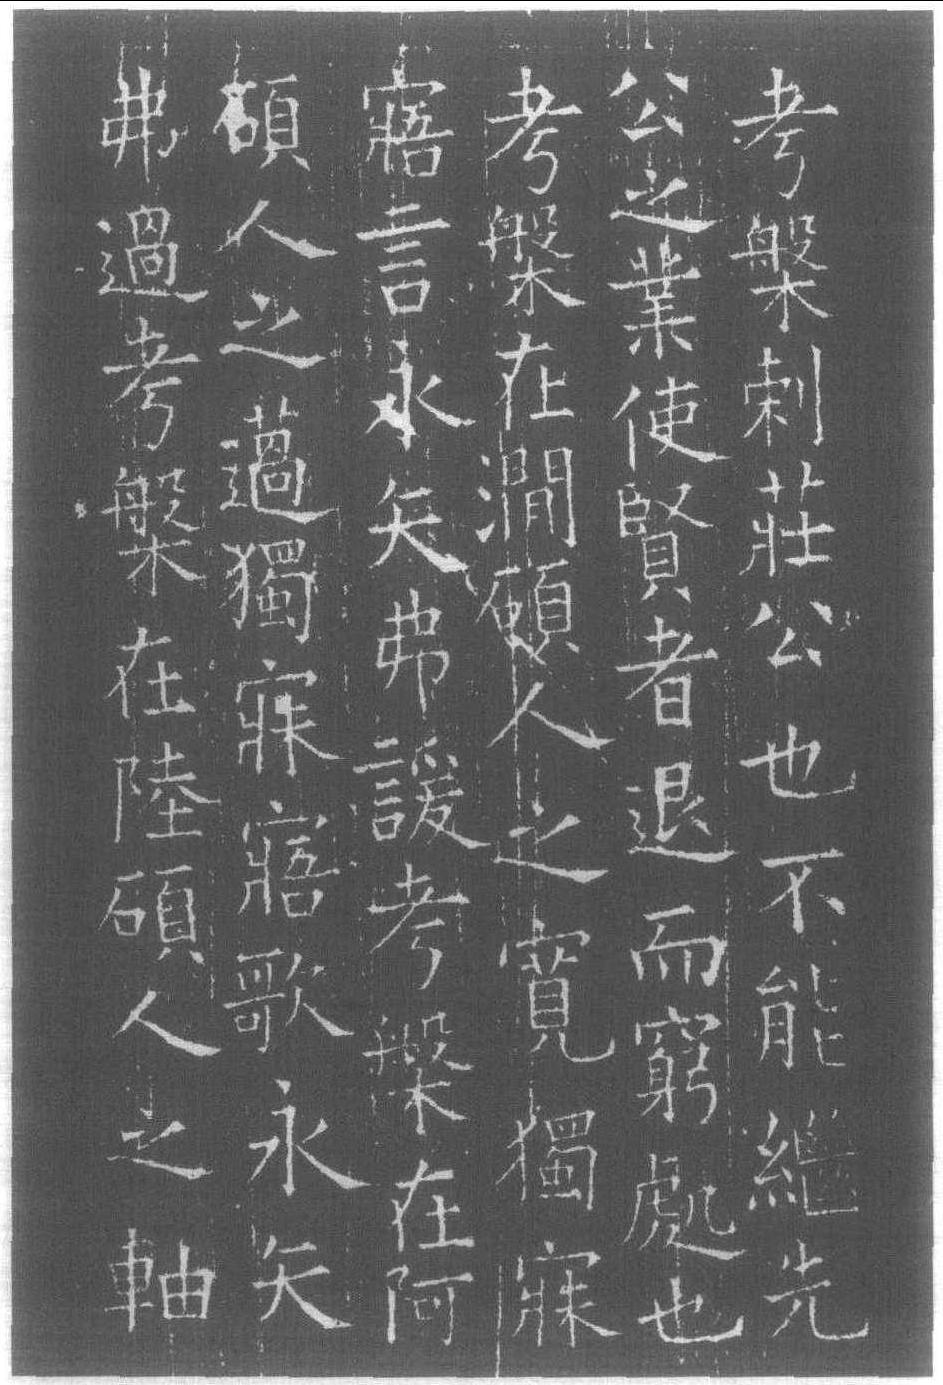 考槃刺莊公也不能繼先
公之業使賢者退而窮處也
考槃在澗碩人之寬獨寐
寤言永矢弗諼考槃在阿
碩人之薖獨寐寤歌永矢
弗過考槃在陸碩人之軸